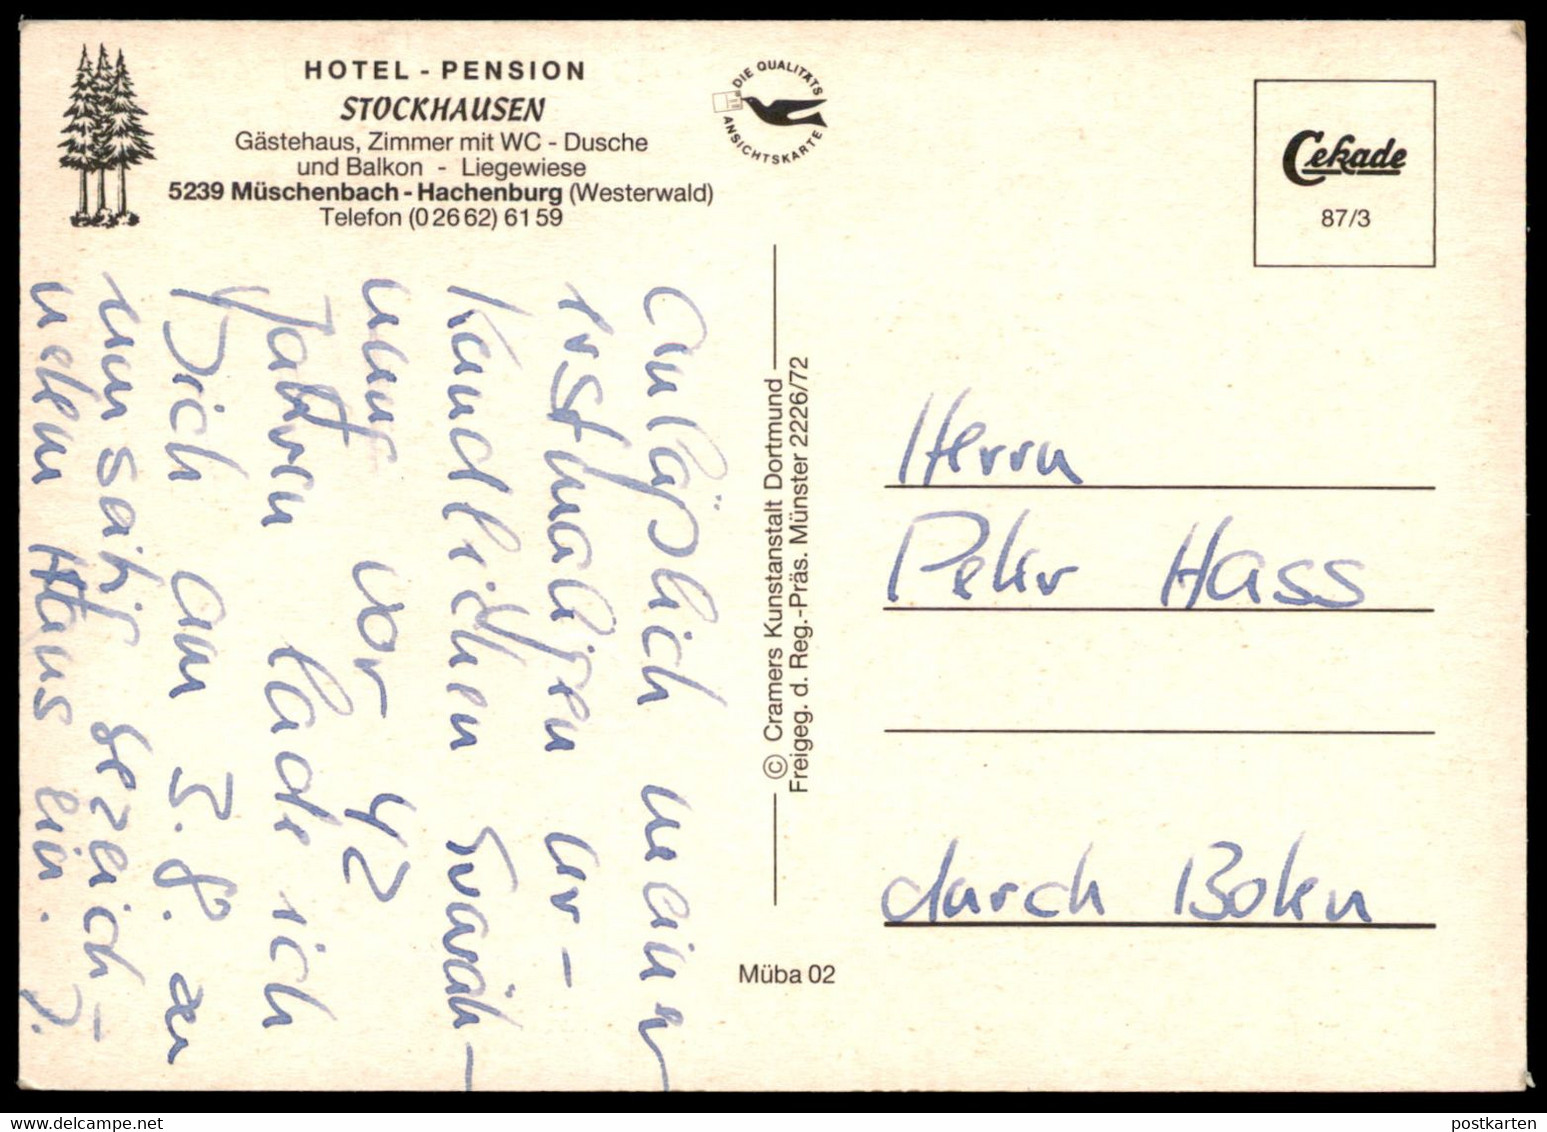 HOTEL - PENSION
STOCKHAUSEN
Gästehaus, Zimmer mit WC - Dusche
und Balkon - Liegewiese
5239 Müschenbach - Hachenburg (Westerwald)
Telefon (0 26 62) 61 59
DIE QUALITÄTS
ANSICHTSKARTE
Cekade
87/3
Anläßlich meiner
erstmaligen ur-
kundlichen Erwäh-
nung vor 42
Jahren lade ich
Dich am 5.8. zu
einem Haus ein. J.
© Cramers Kunstanstalt Dortmund
Freigeg. d. Reg.-Präs. Münster 2226/72
Herrn
Peter Hass
durch Boten
Müba 02
postkarten